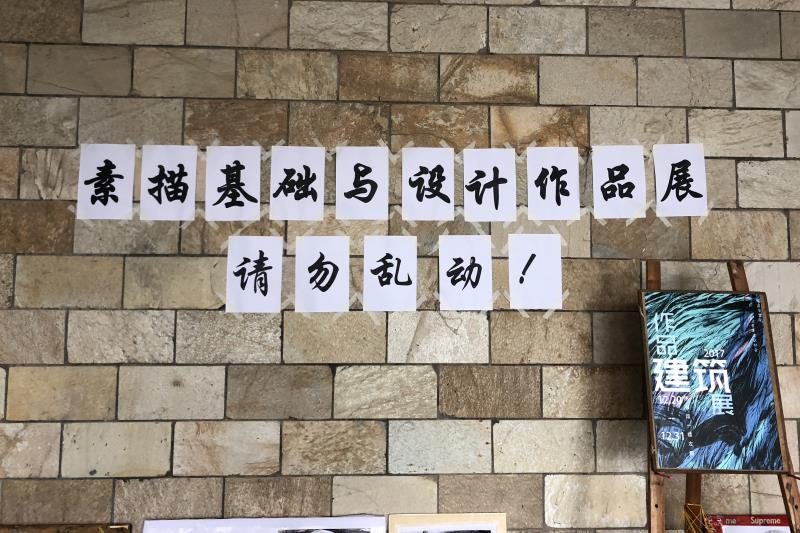 素描基础与设计作品展
请勿乱动！
作品
2017
建筑
展
12.29
12.31
me
Supreme